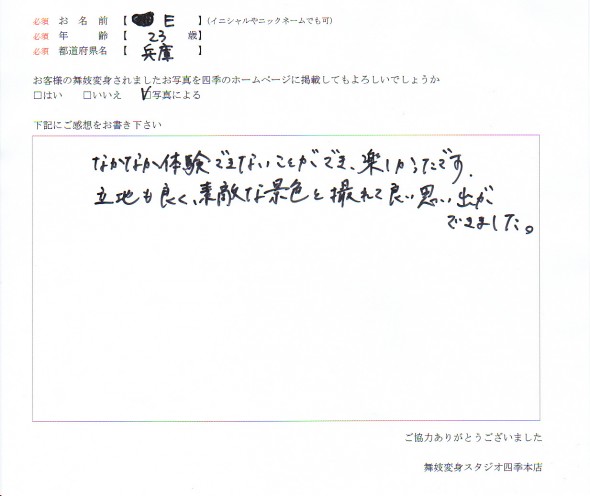 必須 お 名 前 【 E 】(イニシャルやニックネームでも可)
必須 年 齢 【 23 歳】
必須 都道府県名 【 兵庫 】
お客様の舞妓変身されましたお写真を四季のホームページに掲載してもよろしいでしょうか
□はい □いいえ ☑写真による
下記にご感想をお書き下さい
なかなか体験できないことができ、楽しかったです。
立地も良く、素敵な景色と撮れて良い思い出が
できました。
ご協力ありがとうございました
舞妓変身スタジオ四季本店